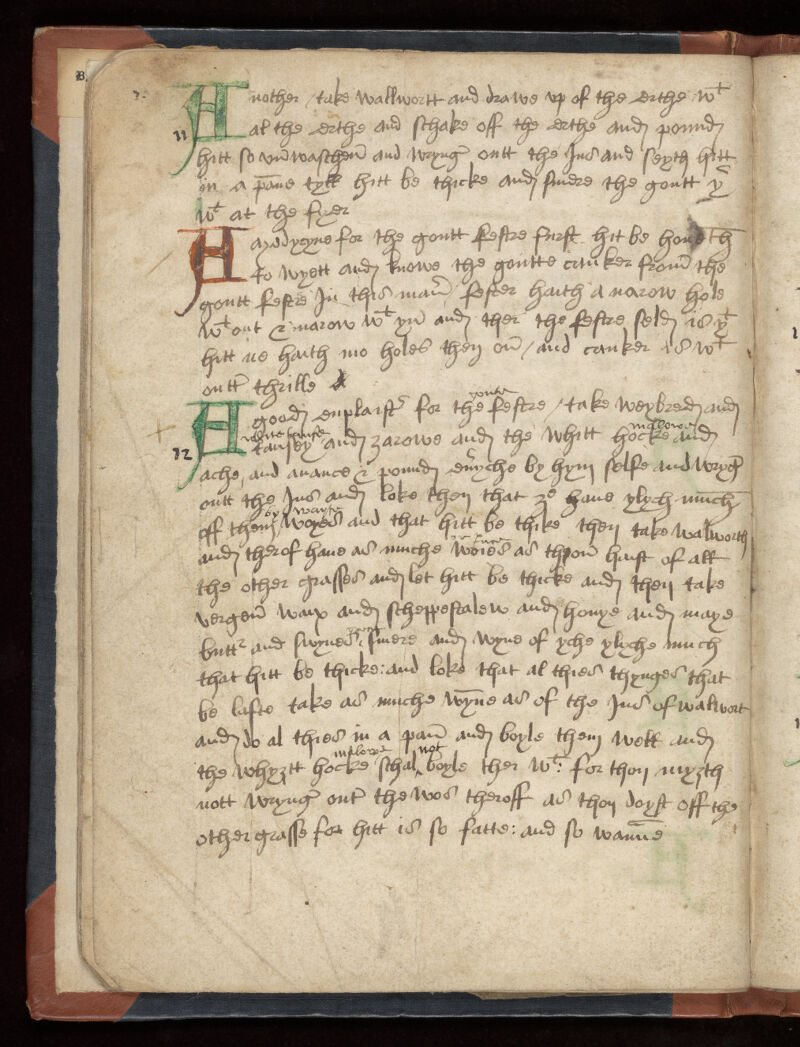 B.
Another / take wallwortt and drawe vp of the erthe wt
11
al the erthe and schake off the erthe and pound
hitt so vnwaschen and wryng outt the Jus and seyth hitt
in a pane tyll hitt be thicke and smere the goutt yr
wt at the fyer
A medycyne for the goutt festre furst hit be houeth
to wyett and knowe the goutte canker from the
goutt festre In this maner fester haith a narow hole
wt out & marow wt yn and ther the festre feld is yt
hitt ne haith mo holes then on / and canker is wt
outt thrille
goute
A good emplaistr for the festre / take weybred and
wilde tansye mallowe
12
tansey and zarowe and the whitt hocke and
ache, and auance & pound euyche by hym selfe and wryng
outt the Jus and loke then that ze haue ylych much
off them woyes and that hitt be thike then take walworth
and therof haue as muche woies as thyou haist of all
the other grasses and let hitt be thicke and then take
vergen wax and scheppestalew and honye and maye
buttr and swynes smere and wyne of yche ylyche much
that hitt be thicke: and loke that al thies thynges that
be lafte take as muche wyne as of the Jus of walwort
and do al thies in a pan and boyle them well and
mallowe not
the whyztt hocke schal boyle ther wt: for thou myzth
nott wryng outt the wos theroff as thou doyst off the
other grasse for hitt is so fatte: and so wanne